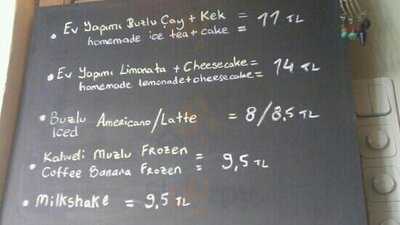 • Ev Yapımı Buzlu Çay + Kek = 11 TL
homemade ice tea + cake =
• Ev Yapımı Limonata + Cheesecake = 14 TL
homemade lemonade + cheesecake =
• Buzlu Americano/Latte = 8/8,5 TL
Iced
• Kahveli Muzlu Frozen = 9,5 TL
Coffee Banana Frozen =
• Milkshake = 9,5 TL